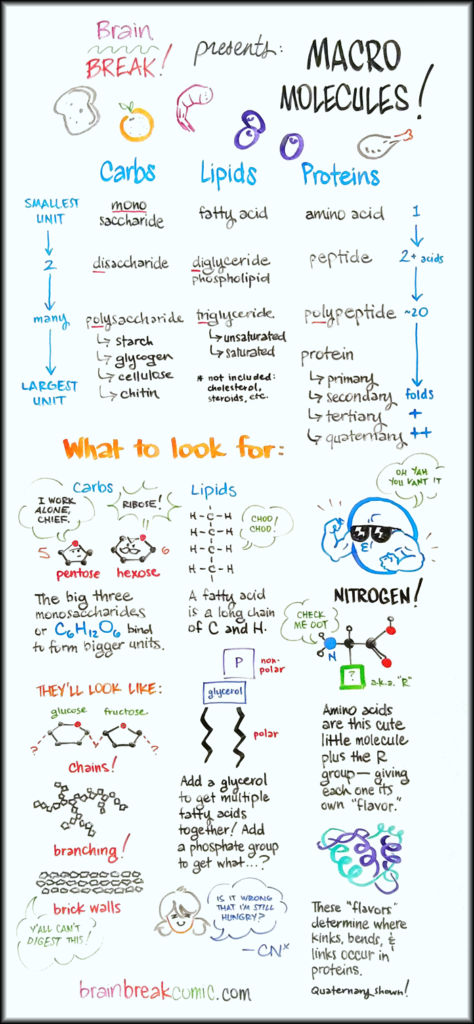 Brain
BREAK!
presents:
MACRO
MOLECULES!
Carbs
Lipids
Proteins
SMALLEST
UNIT
mono
saccharide
fatty acid
amino acid
1
2
disaccharide
diglyceride
phospholipid
peptide
2+ acids
many
polysaccharide
triglyceride
polypeptide
~20
↳ starch
↳ glycogen
↳ cellulose
↳ chitin
↳ unsaturated
↳ saturated
* not included:
cholesterol,
steroids, etc.
protein
↳ primary
↳ secondary
↳ tertiary
↳ quaternary
folds
+
++
LARGEST
UNIT
What to look for:
Carbs
I WORK
ALONE,
CHIEF.
RIBOSE!
5
6
pentose
hexose
The big three
monosaccharides
or C6H12O6 bind
to form bigger units.
THEY'LL LOOK LIKE:
glucose
fructose
?
?
chains!
branching!
brick walls
Y'ALL CAN'T
DIGEST THIS!
Lipids
H-C-H
H-C-H
H-C-H
H-C-H
CHOO
CHOO!
A fatty acid
is a long chain
of C and H.
P
non-
polar
glycerol
polar
Add a glycerol
to get multiple
fatty acids
together! Add
a phosphate group
to get what...?
IS IT WRONG
THAT I'M STILL
HUNGRY?
-CNx
OH YAH
YOU WANT IT
NITROGEN!
CHECK
ME OOT
N
?
a.k.a. "R"
Amino acids
are this cute
little molecule
plus the R
group— giving
each one its
own "flavor."
These "flavors"
determine where
kinks, bends, &
links occur in
proteins.
Quaternary shown!
brainbreakcomic.com